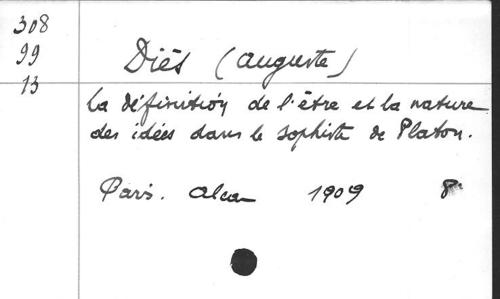 308
99
13
Diès (Auguste)
La définition de l'être et la nature
des idées dans le Sophiste de Platon.
Paris. Alcan 1909 8º